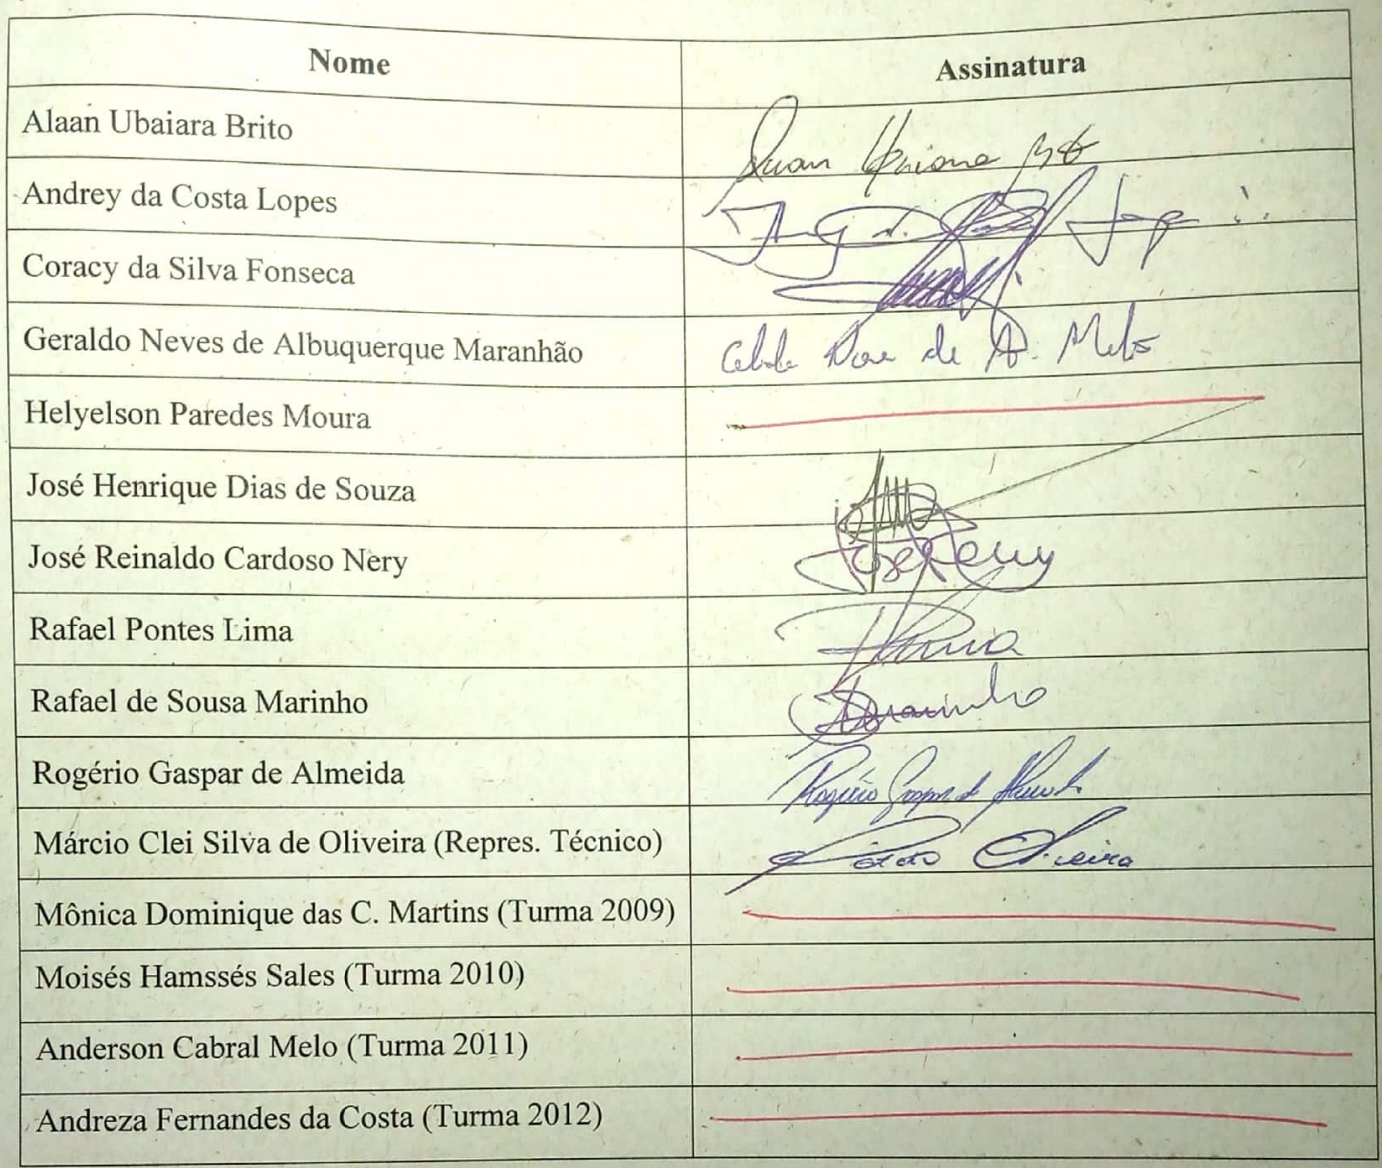 Nome Assinatura
Alaan Ubaiara Brito
Andrey da Costa Lopes
Coracy da Silva Fonseca
Geraldo Neves de Albuquerque Maranhão de A. Melo
Helyelson Paredes Moura
José Henrique Dias de Souza
José Reinaldo Cardoso Nery
Rafael Pontes Lima
Rafael de Sousa Marinho Marinho
Rogério Gaspar de Almeida Rogério Gaspar de Almeida
Márcio Clei Silva de Oliveira (Repres. Técnico) Oliveira
Mônica Dominique das C. Martins (Turma 2009)
Moisés Hamssés Sales (Turma 2010)
Anderson Cabral Melo (Turma 2011)
Andreza Fernandes da Costa (Turma 2012)